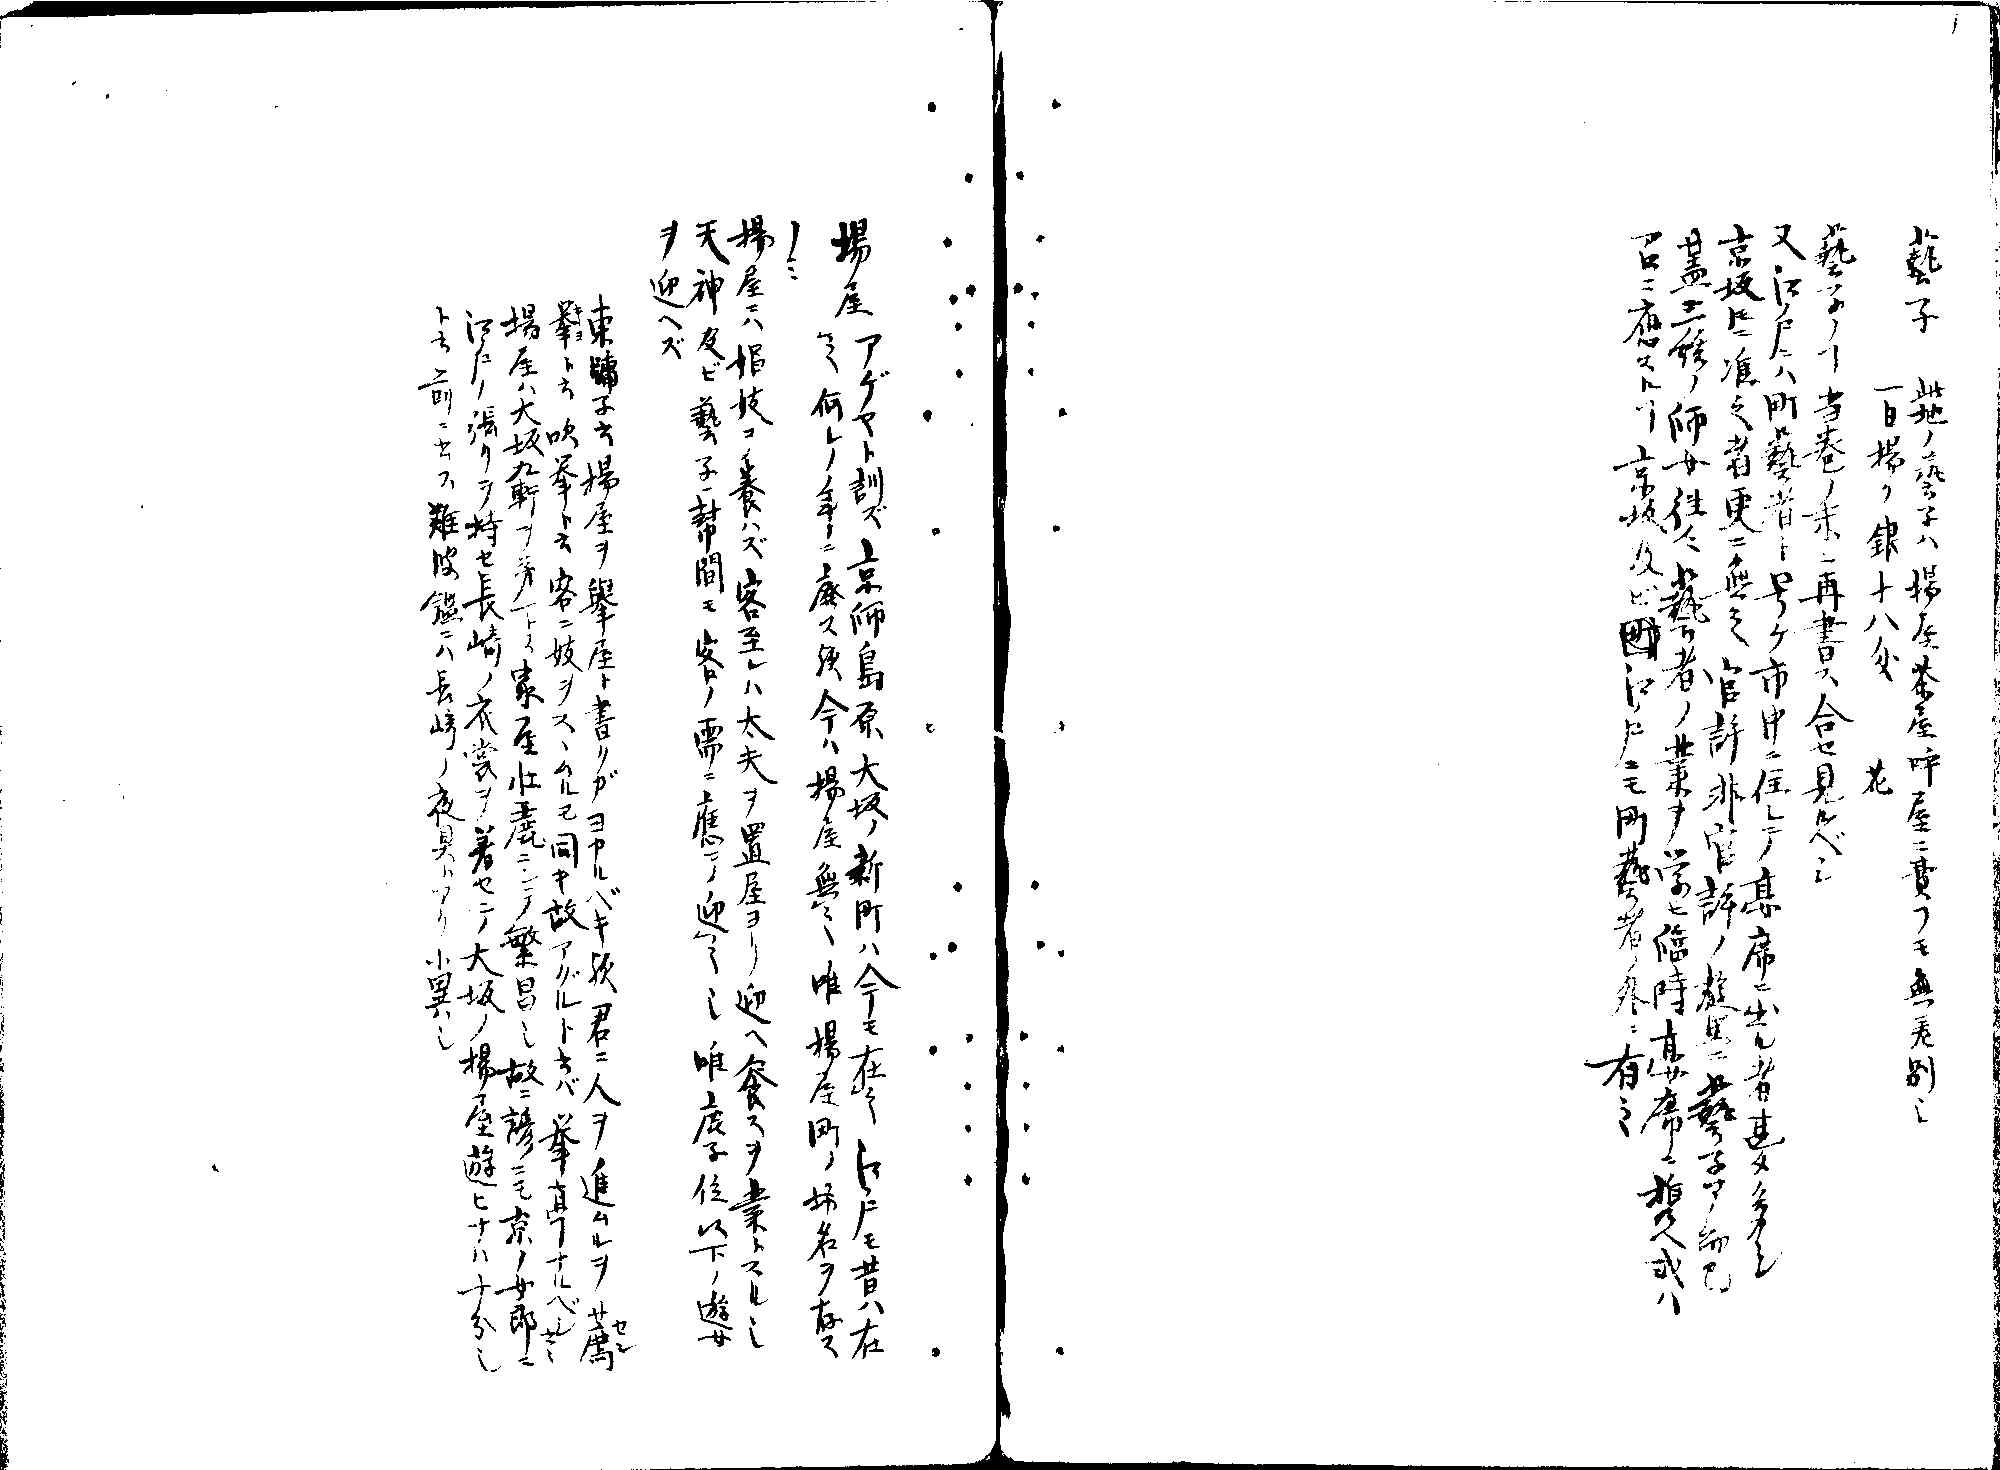 藝子 此地ノ藝子ハ揚屋茶屋呼屋ニ費フモ無差別也
一日揚り銀十八匁 花
藝子ノヿ当巻ノ末ニ再書ス合セ見ルベシ
又江戸ニハ町藝者ト号ケ市中ニ住シテ高席ニ出ル者甚タ多シ
京坂ニ准之者更ニ無之官許非官許ノ遊里ニ藝子アル而已
蓋三絃ノ師女往々藝者ノ業ヲ学ヒ臨時高席ニ携ヘ或ハ
召ニ應ストリ京坂及ビ江戸ニモ町藝者ノ外ニ有之
揚屋 アゲヤト訓ズ京師島原大坂ノ新町ハ今モ在之江戸モ昔ハ在
之何レノ年ニ廃ス歟今ハ揚屋無之唯揚屋町ノ坊名ヲ存ス
ノミ
揚屋ニハ娼妓ヲ養ハズ客至レハ太夫ヲ置屋ヨリ迎ヘ餐スヲ業トスル也
天神及ビ藝子幇間モ客ノ需ニ應テ迎之也唯鹿子位以下ノ遊女
ヲ迎ヘズ
東牗子云揚屋ヲ擧屋ト書リガヨカルベキ歟君ニ人ヲ進ムルヲ薦
擧ト云吹挙ト云客ニ妓ヲスヽムルモ同キ故アグルト云バ挙直ナルベシ
揚屋ハ大坂九軒ヲ第一トス家屋壮麗ニシテ繁昌也故ニ諺ニモ京ノ女郎ニ
江戸ノ張リヲ持セ長崎ノ衣裳ヲ着セテ大坂ノ揚屋遊ヒナハ十分也
ト云前ニ云フ難波鑑ニハ長崎ノ夜具トアリ小異也